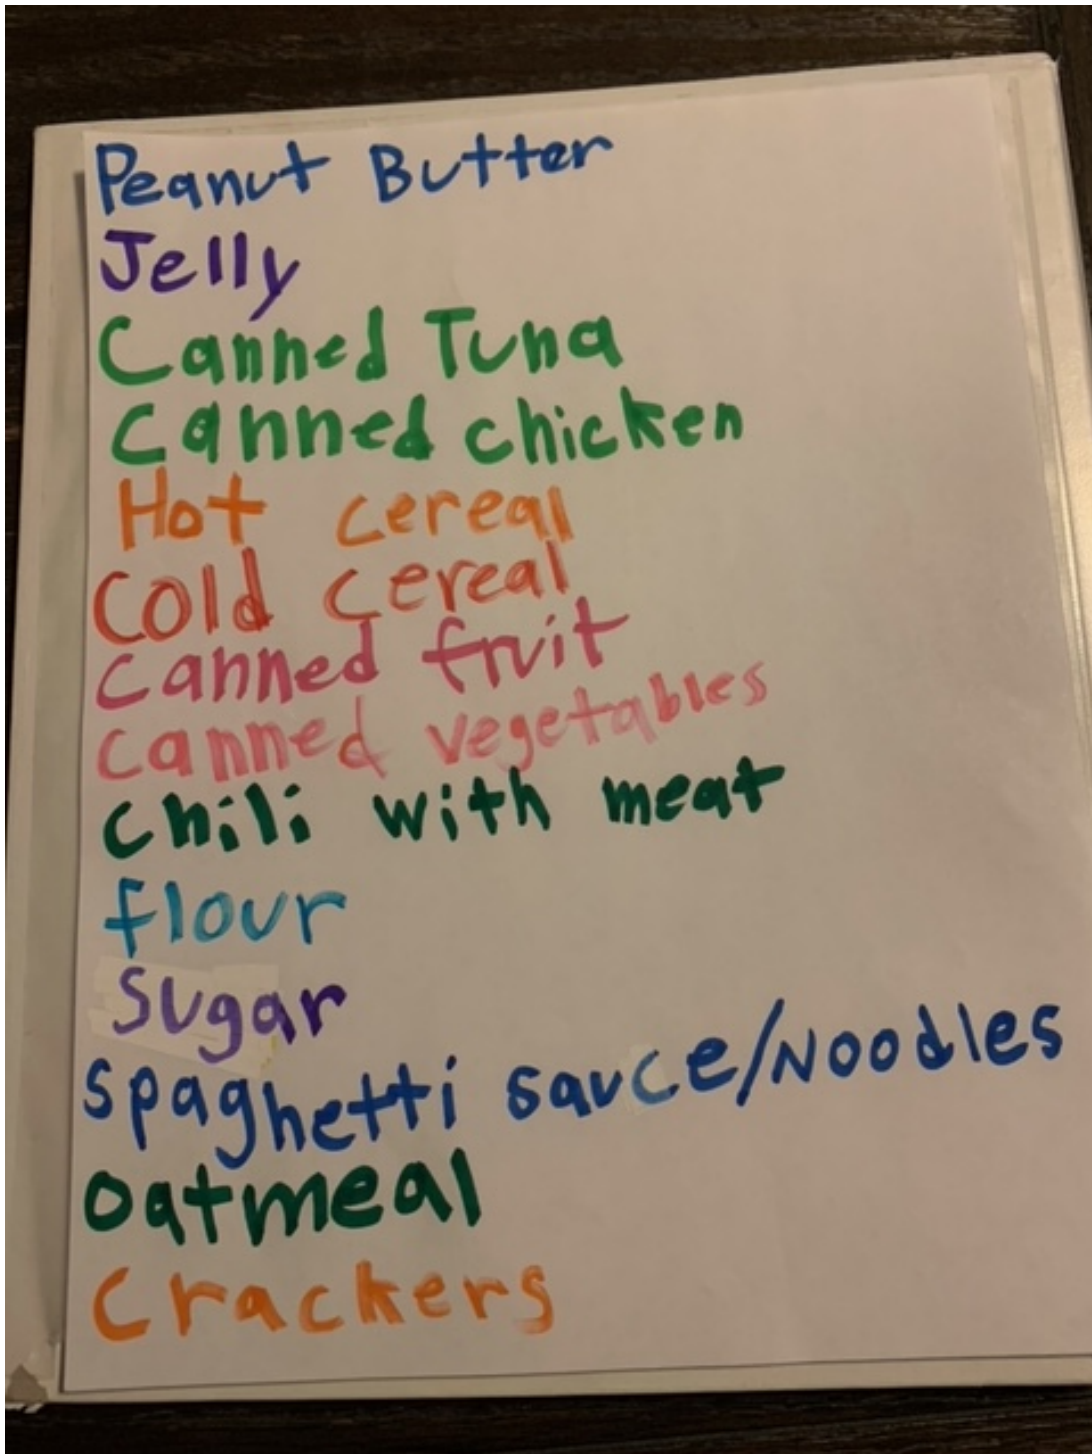 Peanut Butter
Jelly
Canned Tuna
Canned chicken
Hot cereal
Cold cereal
Canned fruit
Canned vegetables
Chili with meat
flour
Sugar
Spaghetti sauce/Noodles
Oatmeal
Crackers